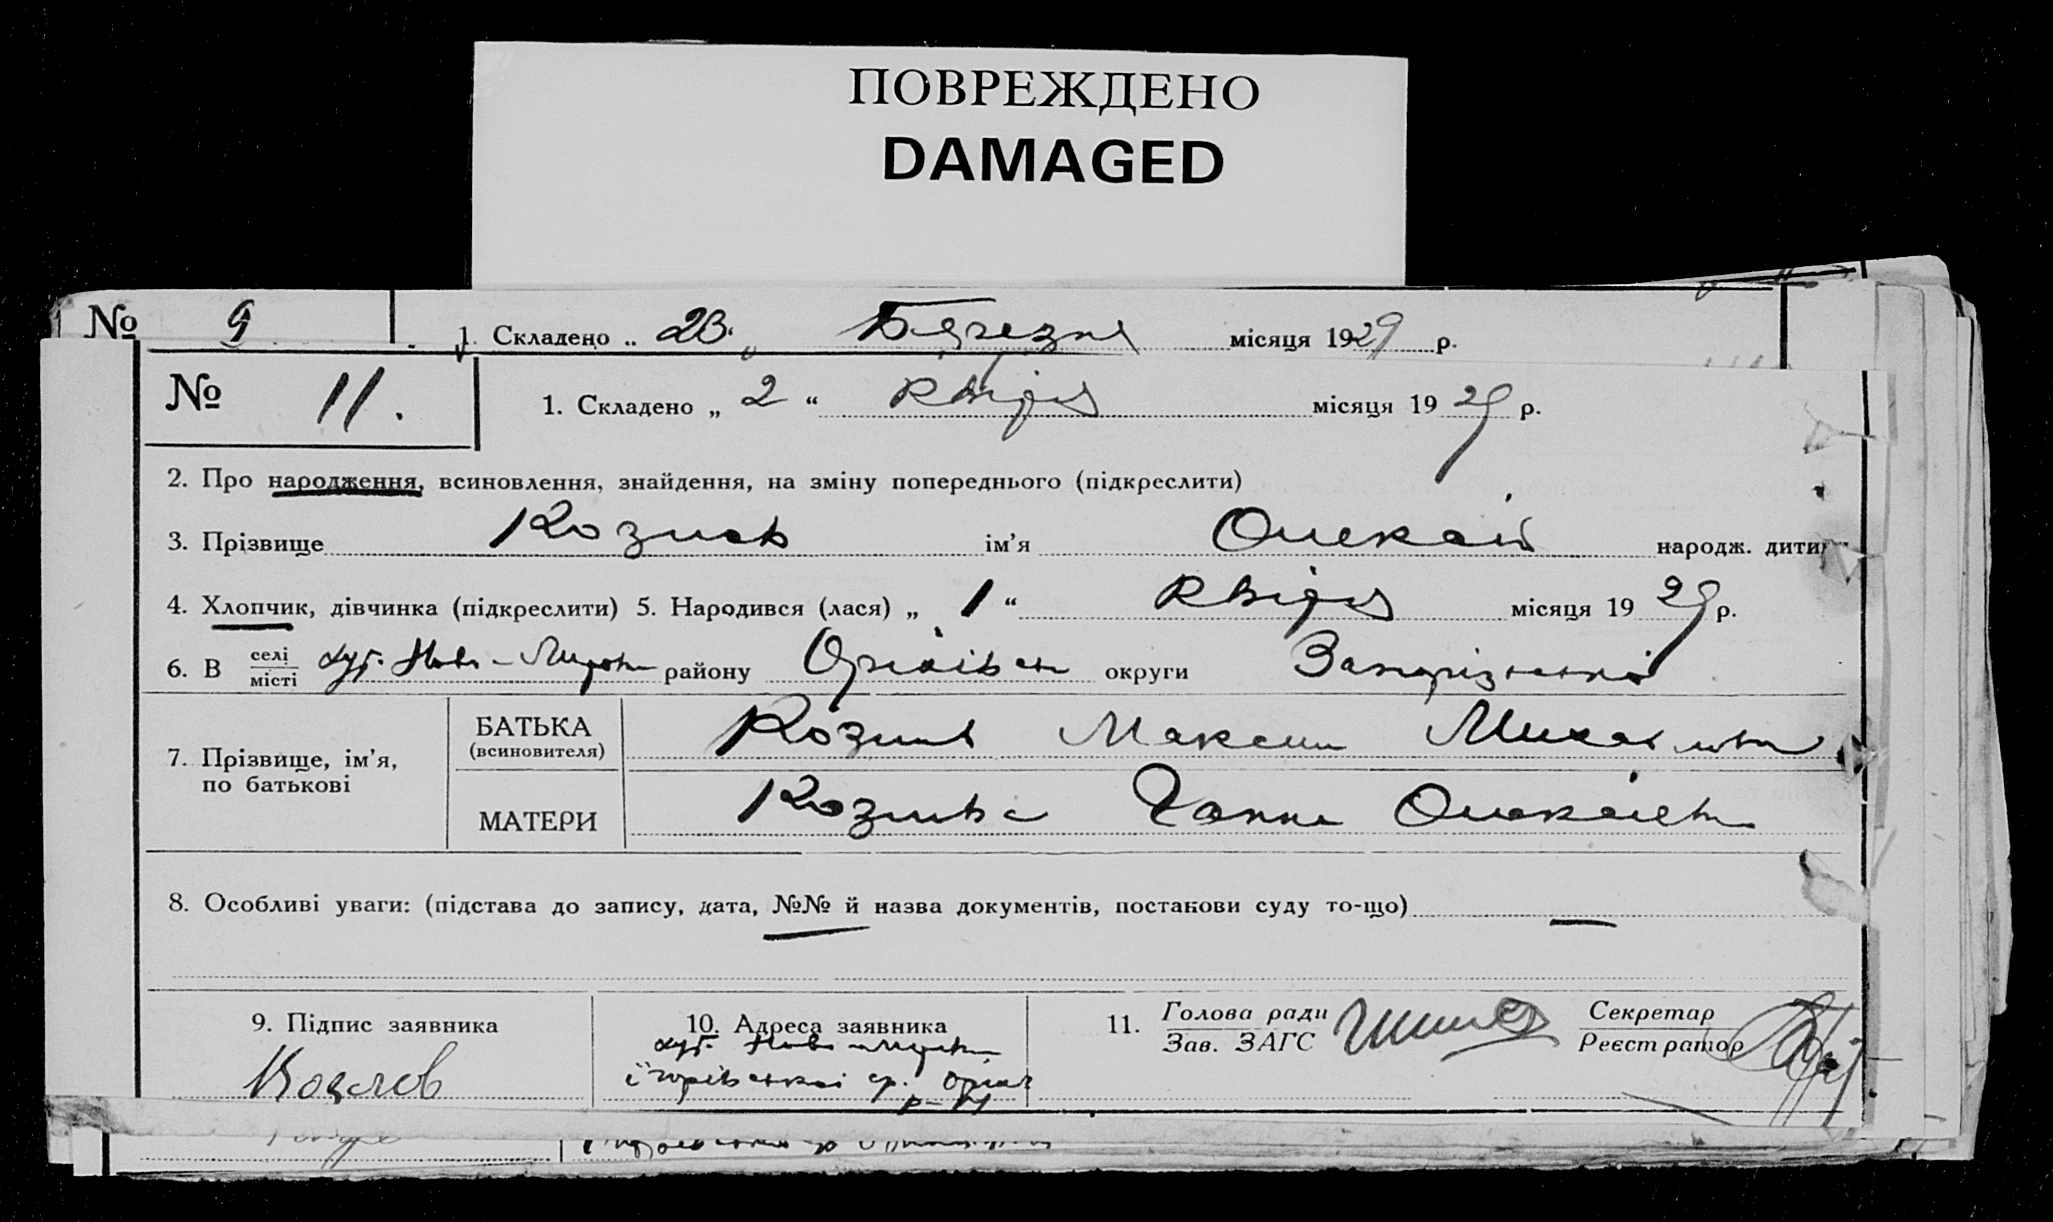 ПОВРЕЖДЕНО
DAMAGED
№ 9 1. Складено „ 23 “ Березня місяця 1929 р.
№ 11. 1. Складено „ 2 “ Квітня місяця 1929 р.
2. Про народження, всиновлення, знайдення, на зміну попереднього (підкреслити)
3. Прізвище Козлов ім’я Олексій народж. дитини
4. Хлопчик, дівчинка (підкреслити) 5. Народився (лася) „ 1 “ Квітня місяця 1929 р.
6. В селі/місті хут. Ново- району Оріхівськ округи Запорізької
7. Прізвище, ім’я, по батькові
БАТЬКА (всиновителя) Козлов Максим Михайлович
МАТЕРИ Козлова Ганна Олексіевна
8. Особливі уваги: (підстава до запису, дата, №№ й назва документів, постанови суду то-що) —
9. Підпис заявника 10. Адреса заявника 11. Голова ради Секретар
Зав. ЗАГС Реєстратор
хут. Ново
Козлов
р-ну